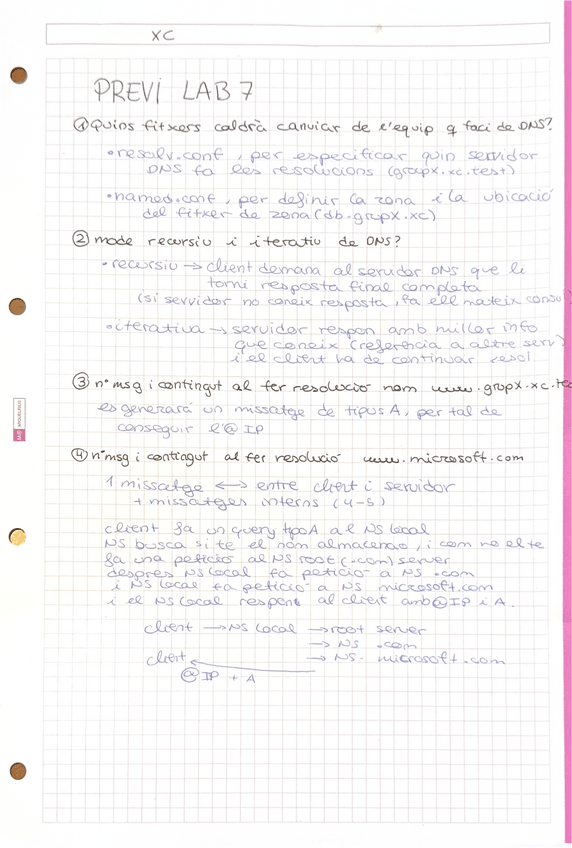 XC
PREVI LAB 7
① Quins fitxers caldrà canviar de l'equip q faci de DNS?
• resolv.conf, per especificar quin servidor
DNS fa les resolucions (grupX.xc.test)
• named.conf, per definir la zona i la ubicació
del fitxer de zona (db.grupX.xc)
② mode recursiu i iteratiu de DNS?
• recursiu → client demana al servidor DNS que li
torni resposta final completa
(si servidor no coneix resposta, fa ell mateix
• iterativa → servidor respon amb millor info
que coneix (referencia a altre serv)
i el client ha de continuar resol
③ nº msg i contingut al fer resolució nom www.grupX.xc.te
es generarà un missatge de tipus A, per tal de
conseguir l'@IP
④ nº msg i contingut al fer resolució www.microsoft.com
1 missatge ↔ entre client i servidor
+ missatges interns (4-5)
client fa un query tipo A al NS local
NS busca si te el nom almacenao, i com no el te
fa una petició al NS root (.com) server
després NS local fa petició a NS .com
i NS local fa petició a NS microsoft.com
i el NS local respont al client amb @IP i A.
client → NS local → root server
→ NS .com
client → NS. microsoft.com
@IP + A